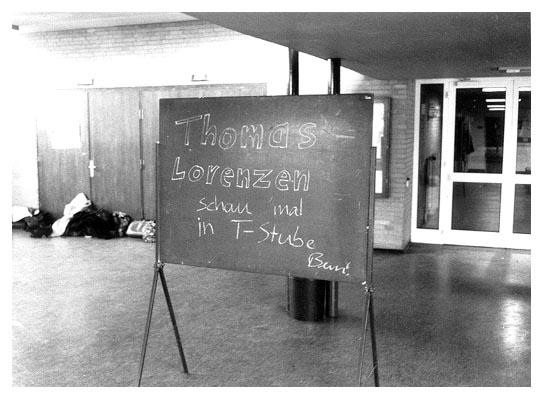 Thomas
Lorenzen
schau 'mal
in T-Stube